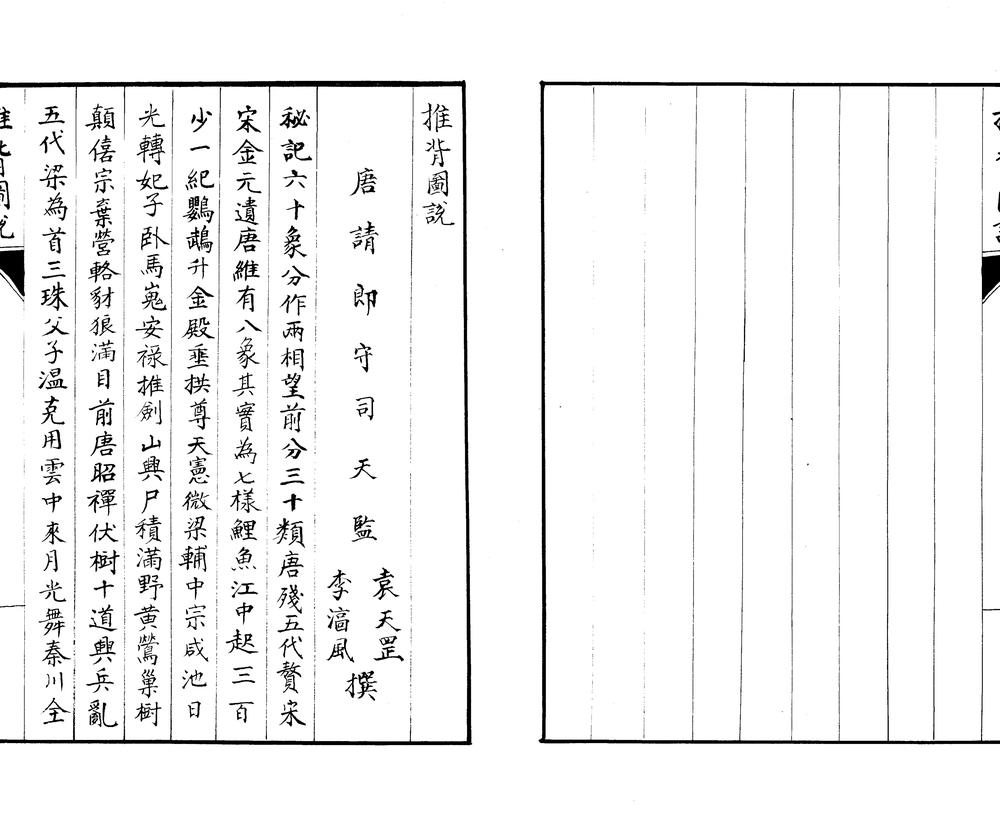 推背圖說
唐請郎守司天監
袁天罡
李淳風
撰
秘記六十象分作兩相望前分三十類唐殘五代贅宋
宋金元遺唐維有八象其實為七樣鯉魚江中起三百
少一紀鸚鵡升金殿垂拱尊天憲微梁輔中宗咸池日
光轉妃子臥馬嵬安祿推劍山興尸積滿野黃鶯巢樹
顛僖宗棄營輅豺狼滿目前唐昭禪伏樹十道興兵亂
五代梁為首三珠父子溫克用雲中來月光舞秦川全
推背圖說